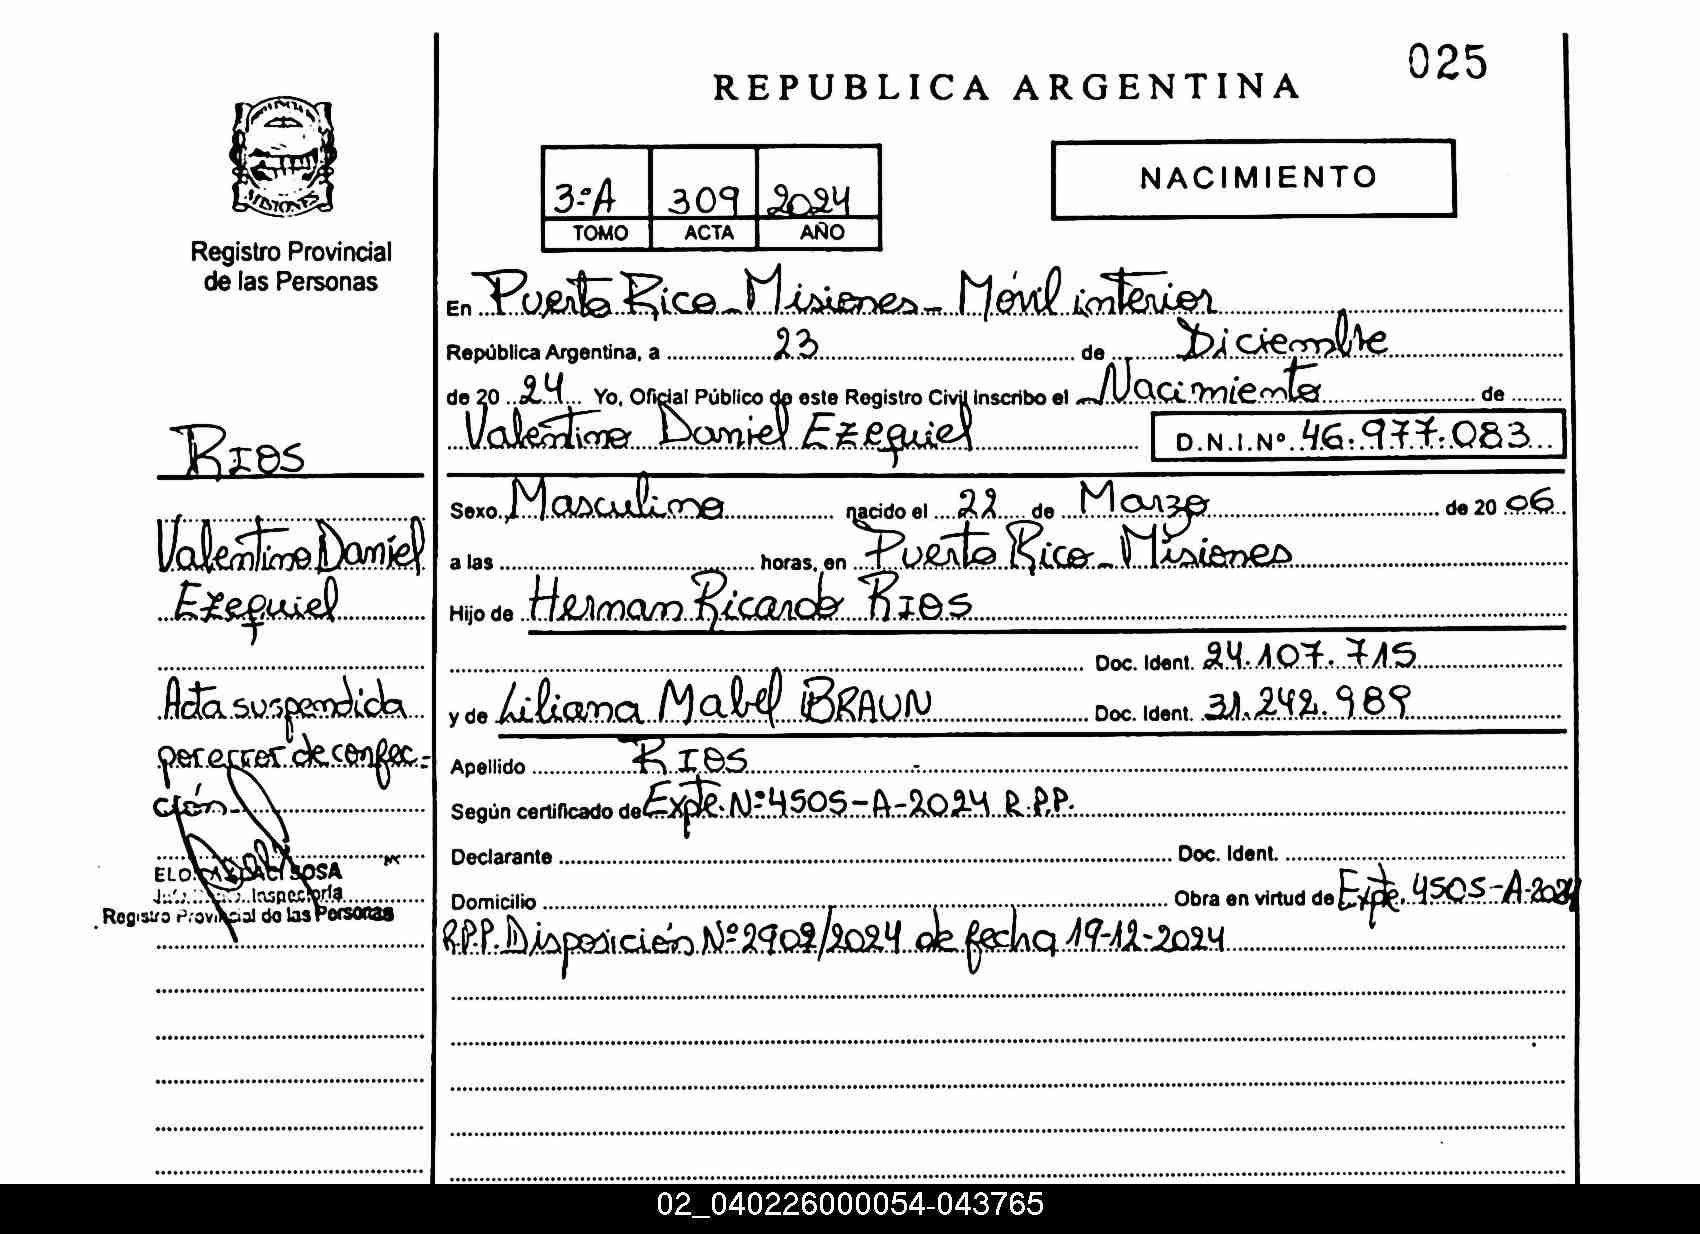 025
REPUBLICA ARGENTINA
MISIONES
Registro Provincial
de las Personas
3ºA 309 2024
TOMO ACTA AÑO
NACIMIENTO
En Puerto Rico - Misiones - Móvil interior
República Argentina, a 23 de Diciembre
de 2024 Yo, Oficial Público de este Registro Civil inscribo el Nacimiento de
Valentino Daniel Ezequiel D.N.I.Nº 46.977.083
RIOS
Valentino Daniel
Ezequiel
Acta suspendida
por error de confec-
ción
SOSA
Inspectoría
Registro Provincial de las Personas
Sexo Masculino nacido el 22 de Marzo de 2006
a las horas, en Puerto Rico - Misiones
Hijo de Hernan Ricardo RIOS
Doc. Ident. 24.107.715
y de Liliana Mabel BRAUN Doc. Ident. 31.242.989
Apellido RIOS
Según certificado de Expte. Nº 4505-A-2024 R.P.P.
Declarante Doc. Ident.
Domicilio Obra en virtud de Expte. 4505-A-2024
R.P.P. Disposición Nº 2902/2024 de fecha 19-12-2024
02_040226000054-043765